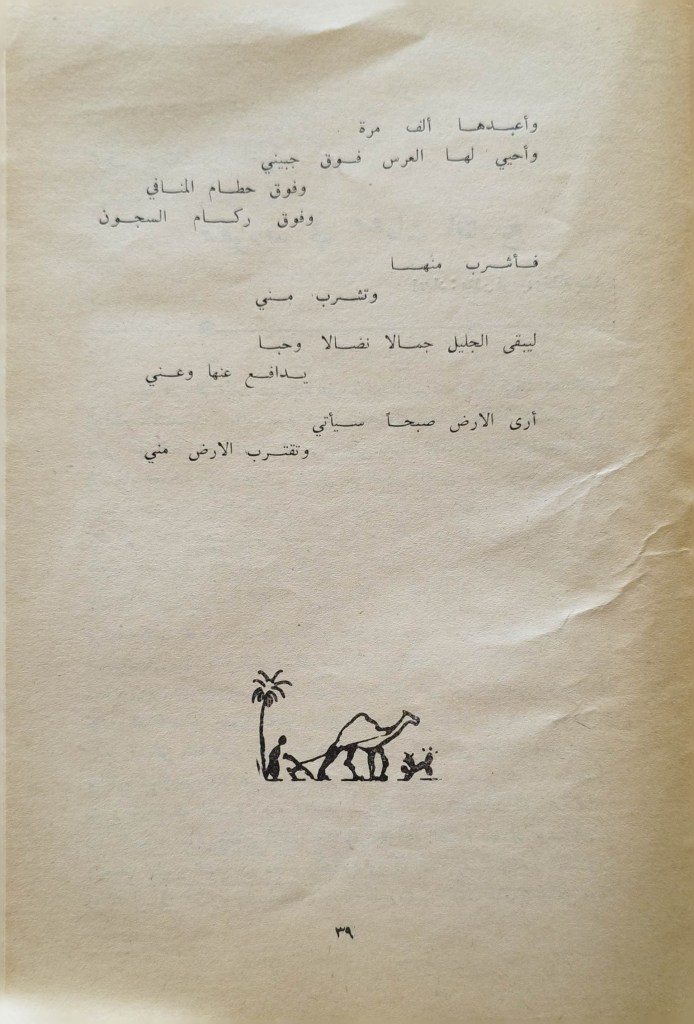 وأعبدها ألف مرة
وأحيي لها العرس فوق جبيني
وفوق حطام المنافي
وفوق ركام السجون
فأشرب منها
وتشرب مني
ليبقى الجليل جمالا نضالا وحبا
يدافع عنها وعني
أرى الارض صبحاً سيأتي
وتقترب الارض مني
٣٩